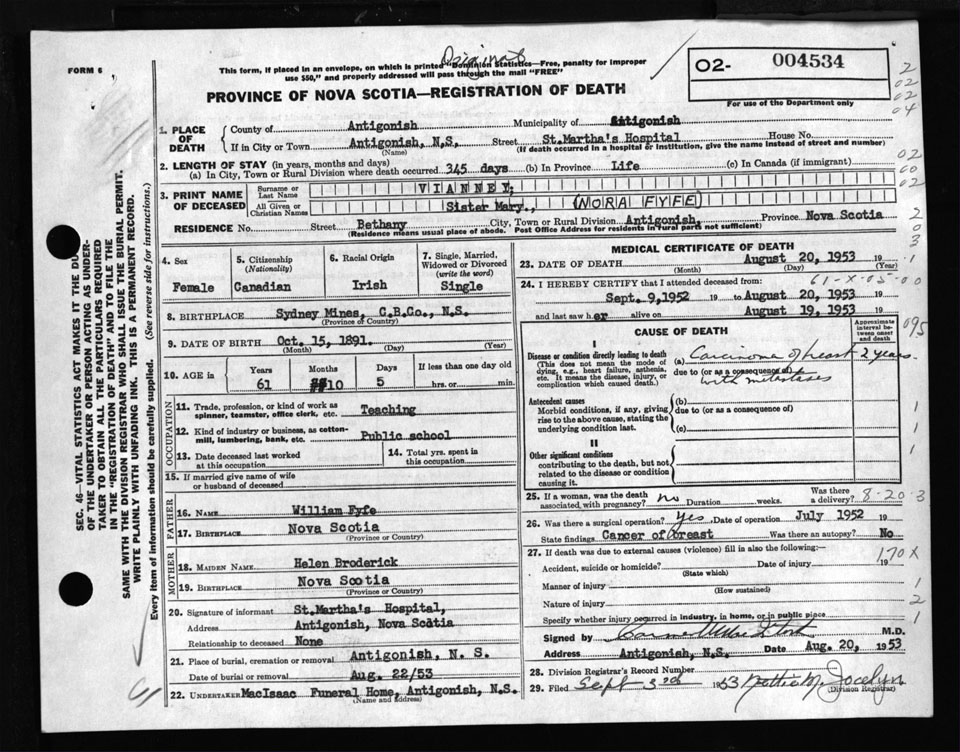 FORM 6
Original
This form, if placed in an envelope, on which is printed "Dominion Statistics—Free, penalty for improper
use $50," and properly addressed will pass through the mail "FREE"
O2- 004534
For use of the Department only
2
02
02
04
PROVINCE OF NOVA SCOTIA—REGISTRATION OF DEATH
1. PLACE OF DEATH
County of Antigonish Municipality of Antigonish
If in City or Town Antigonish, N.S. Street St.Martha's Hospital House No.
(Name) (If death occurred in a hospital or institution, give the name instead of street and number)
2. LENGTH OF STAY (in years, months and days)
(a) In City, Town or Rural Division where death occurred 345 days (b) In Province Life (c) In Canada (if immigrant)
02
00
02
3. PRINT NAME OF DECEASED
Surname or Last Name VIANNEY,
All Given or Christian Names Sister Mary., (NORA FYFE)
RESIDENCE No. Street Bethany City, Town or Rural Division Antigonish, Province Nova Scotia
(Residence means usual place of abode. Post Office Address for residents in rural parts not sufficient)
2
0
3
4. Sex Female
5. Citizenship (Nationality) Canadian
6. Racial Origin Irish
7. Single, Married, Widowed or Divorced (write the word) Single
8. BIRTHPLACE Sydney Mines, C.B.Co., N.S.
(Province or Country)
9. DATE OF BIRTH Oct. 15, 1891.
(Month) (Day) (Year)
10. AGE in Years 61 Months 10 Days 5 If less than one day old hrs. or min.
OCCUPATION
11. Trade, profession, or kind of work as spinner, teamster, office clerk, etc. Teaching
12. Kind of industry or business, as cotton-mill, lumbering, bank, etc. Public school
13. Date deceased last worked at this occupation
14. Total yrs. spent in this occupation
15. If married give name of wife or husband of deceased
FATHER
16. NAME William Fyfe
17. BIRTHPLACE Nova Scotia
(Province or Country)
MOTHER
18. MAIDEN NAME Helen Broderick
19. BIRTHPLACE Nova Scotia
(Province or Country)
20. Signature of informant St.Martha's Hospital,
Address Antigonish, Nova Scotia
Relationship to deceased None
21. Place of burial, cremation or removal Antigonish, N. S.
Date of burial or removal Aug. 22/53
22. UNDERTAKER MacIsaac Funeral Home, Antigonish, N.S.
(Name and address)
MEDICAL CERTIFICATE OF DEATH
23. DATE OF DEATH August 20, 1953 19
(Month) (Day) (Year)
1
24. I HEREBY CERTIFY that I attended deceased from:
61-X-05-00
Sept. 9,1952 19 to August 20, 1953 19
and last saw her alive on August 19, 1953 19
CAUSE OF DEATH
Approximate interval between onset and death
095
I
Disease or condition directly leading to death
(This does not mean the mode of dying, e.g., heart failure, asthenia, etc. It means the disease, injury, or complication which caused death.)
(a) Carcinoma of breast 2 years
due to (or as a consequence of)
with metastases
Antecedent causes
Morbid conditions, if any, giving rise to the above cause, stating the underlying condition last.
(b)
due to (or as a consequence of)
(c)
1
1
1
II
Other significant conditions
contributing to the death, but not related to the disease or condition causing it.
25. If a woman, was the death associated with pregnancy? no Duration weeks. Was there a delivery?
8-20-3
26. Was there a surgical operation? yes Date of operation July 1952 19
State findings Cancer of breast Was there an autopsy? No
27. If death was due to external causes (violence) fill in also the following:—
170X
Accident, suicide or homicide? Date of injury 19
(State which)
Manner of injury 1
(How sustained)
Nature of injury 2
Specify whether injury occurred in industry, in home, or in public place 1
Signed by M.D.
Address Antigonish, N.S. Date Aug. 20, 1953
28. Division Registrar's Record Number
29. Filed Sept 3rd 1953 Jocelyn
(Division Registrar)
SEC. 46—VITAL STATISTICS ACT MAKES IT THE DUTY
OF THE UNDERTAKER OR PERSON ACTING AS UNDER-
TAKER TO OBTAIN ALL THE PARTICULARS REQUIRED
IN THE "REGISTRATION OF DEATH" AND TO FILE THE
SAME WITH THE DIVISION REGISTRAR WHO SHALL ISSUE THE BURIAL PERMIT.
WRITE PLAINLY WITH UNFADING INK. THIS IS A PERMANENT RECORD.
Every item of information should be carefully supplied. (See reverse side for instructions.)